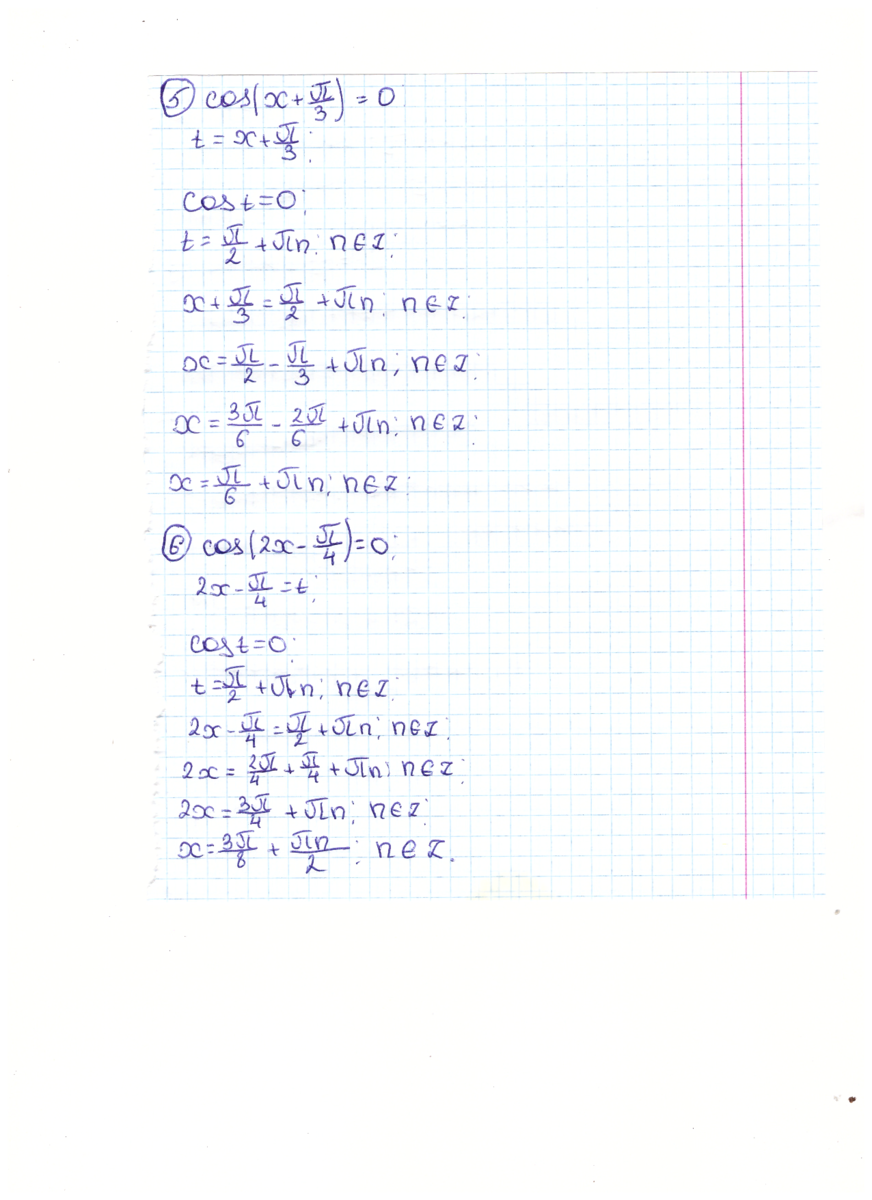 ⑤ cos(x + π/3) = 0
t = x + π/3;
cos t = 0;
t = π/2 + πn; n ∈ Z;
x + π/3 = π/2 + πn; n ∈ Z;
x = π/2 - π/3 + πn; n ∈ Z;
x = 3π/6 - 2π/6 + πn; n ∈ Z;
x = π/6 + πn; n ∈ Z;
⑥ cos(2x - π/4) = 0;
2x - π/4 = t;
cos t = 0;
t = π/2 + πn; n ∈ Z;
2x - π/4 = π/2 + πn; n ∈ Z;
2x = 2π/4 + π/4 + πn; n ∈ Z;
2x = 3π/4 + πn; n ∈ Z;
x = 3π/8 + πn/2; n ∈ Z.